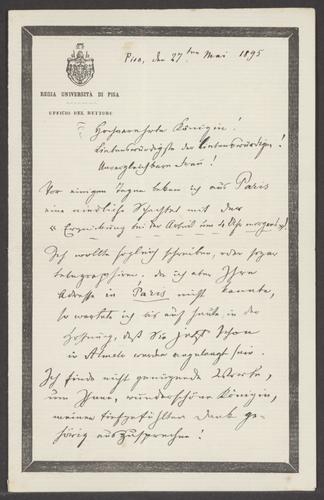 REGIA UNIVERSITÀ DI PISA
UFFICIO DEL RETTORE
Pisa, den 27ten Mai 1895
Hochverehrte Königin!
Liebenswürdigste der Liebenswürdigen!
Unvergleichbare Frau!
Vor einigen Tagen bekam ich aus Paris
eine niedliche Schachtel mit der
« Erquickung bei der Arbeit um 4 Uhr morgens »!
Ich wollte sogleich schreiben, oder sogar
telegraphiren. da ich aber Ihre
Adresse in Paris nicht kannte,
so wartete ich bis auf heute in der
Hoffnung, daß Sie jetzt schon
in Almelo werden angelangt sein.
Ich finde nicht genügende Worte,
um Ihnen, wunderschöne Königin,
meinen tiefgefühlten Dank ge-
hörig auszusprechen!